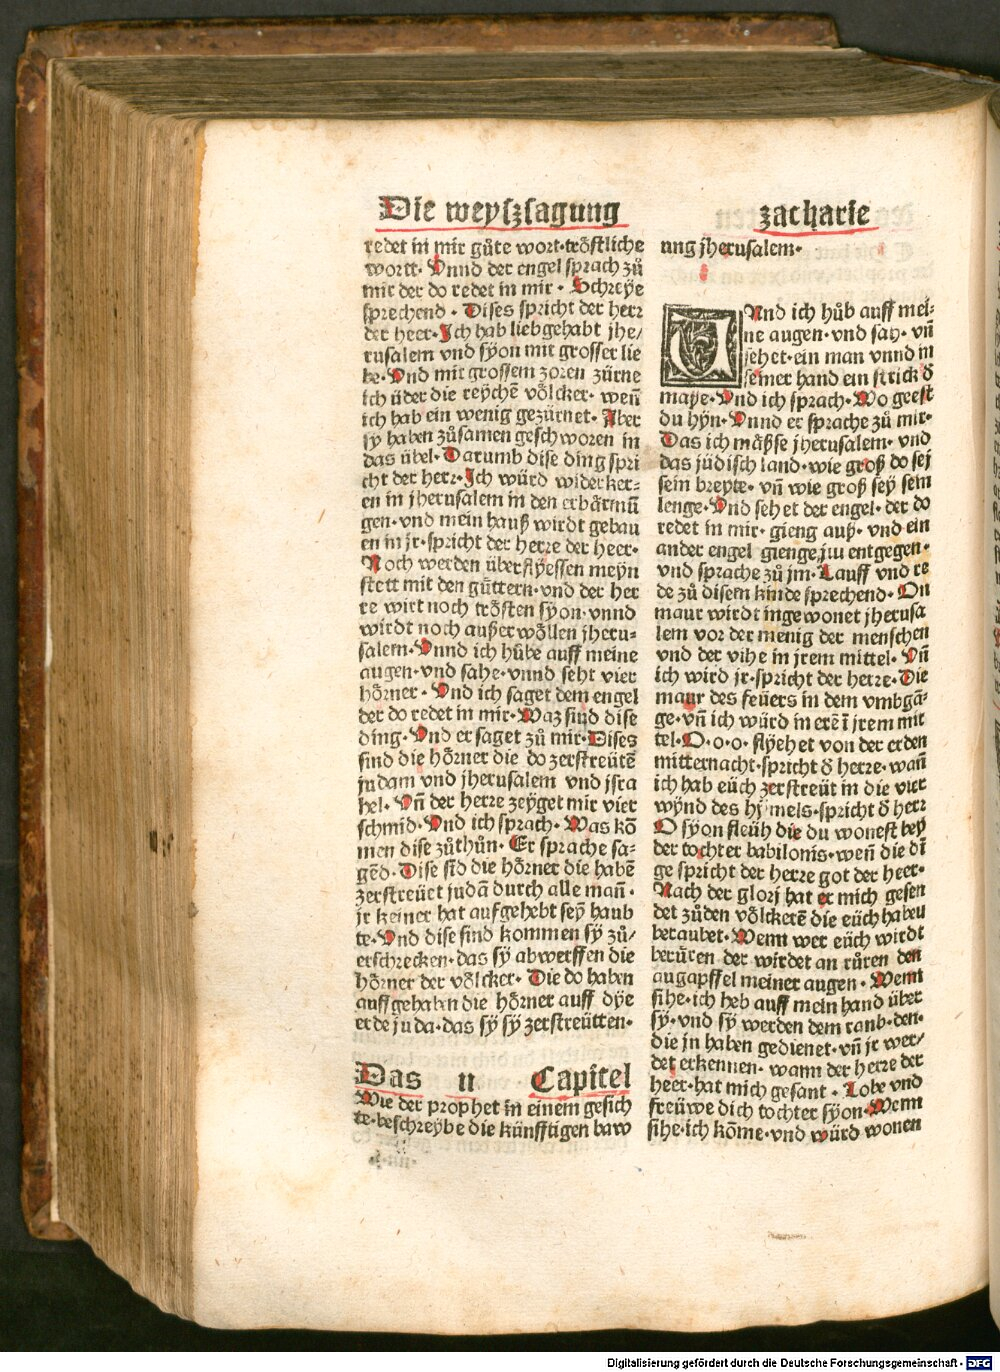 Die weyſzſagung
zacharie
redet in mir gůte wort·tröſtliche
wortt· Vnnd der engel ſprach zů
mir der do redet in mir· Schreye
ſprechend· Diſes ſpricht der herr
der heer·Ich hab lieb gehabt jhe/
ruſalem vnd ſÿon mit groſſer lie
be·Vnd mit groſſem zoren zürne
ich über die reychē völcker· weñ
ich hab ein wenig gezürnet· Aber
ſy haben zůſamen geſchworen in
das übel·Darumb diſe ding ſpri
cht der herr·Ich würd widerker⸗
en in jheruſalem in den erbärmũ
gen·vnd mein hauß wirdt gebau
en in jr·ſpricht der herre der heer·
Noch werden überflÿeſſen meyn
ſtett mit den güttern·vnd der her
re wirt noch tröſten ſyon·vnnd
wirdt noch außerwöllen jheru⸗
ſalem·Vnnd ich hůbe auff meine
augen·vnd ſahe·vnnd ſeht vier
hörner· Vnd ich ſaget dem engel
der do redet in mir·Waz ſind diſe
ding·Vnd er ſaget zů mir·Diſes
ſind die hörner die do zerſtreütē
judam vnd jheruſalem vnd iſra
hel· Vñ der herre zeÿget mir vier
ſchmid·Vnd ich ſprach·Was kō
men diſe zůthůn· Er ſprache ſa⸗
gēd·Diſe ſīd die hörner die habē
zerſtreüet judā durch alle mañ·
jr keiner hat aufgehebt ſeÿ haub
te·Vnd diſe ſind kommen ſÿ zů/
erſchrecken·das ſÿ abwerffen die
hörner der völcker· Die do haben
auffgehaben die hörner auff dÿe
erde juda·das ſÿ ſÿ zerſtreütten·
Das II Capitel
Wie der prophet in einem geſich
te·beſchreybe die künfftigen baw
ung jheruſalem·
VNd ich hůb auff mei⸗
ne augen·vnd ſah· vñ
ſehet·ein man vnnd in
ſeiner hand ein ſtrick ð
maße·Vnd ich ſprach·Wo geeſt
du hÿn·Vnnd er ſprache zů mir·
Das ich mäßſe jheruſalem· vnd
das jüdiſch land·wie groß do ſej
ſein breyte· vñ wie groß ſeÿ ſein
lenge·Vnd ſehet der engel· der do
redet in mir· gieng auß· vnd ein
ander engel gienge jm entgegen·
vnd ſprache zů jm·Lauff vnd re
de zů diſem kinde ſprechend· On
maur wirdt ingewonet jheruſa
lem vor der menig der menſchen
vnd der vihe in jrem mittel· Vñ
ich wird jr·ſpricht der herre·Die
maur des feüers in dem vmbgā⸗
ge·vñ ich würd in erē ī jrem mit
tel·O·o·o· flÿehet von der erden
mitternacht·ſpricht ð herre·wañ
ich hab eüch zerſtreüt in die vier
wÿnd des hÿmels·ſpricht ð herr
O ſÿon fleüh die du woneſt beÿ
der tochter babilonis·weñ die dī
ge ſpricht der herre got der heer·
Nach der glorj hat er mich geſen
det zůden völckerē die eüch haben
beraubet·Wenn wer eüch wirdt
berüren der wirdet an rüren den
augapffel meiner augen· Wenn
ſihe·ich heb auff mein hand über
ſÿ·vnd ſÿ werden dem raub·den·
die jn haben gedienet·vñ jr wer/
det erkennen· wann der herre der
heer·hat mich geſant· Lobe vnd
freüwe dich tochter ſÿon·Wenn
ſihe·ich kōme·vnd würd wonen
Digitalisierung gefördert durch die Deutsche Forschungsgemeinschaft - DFG